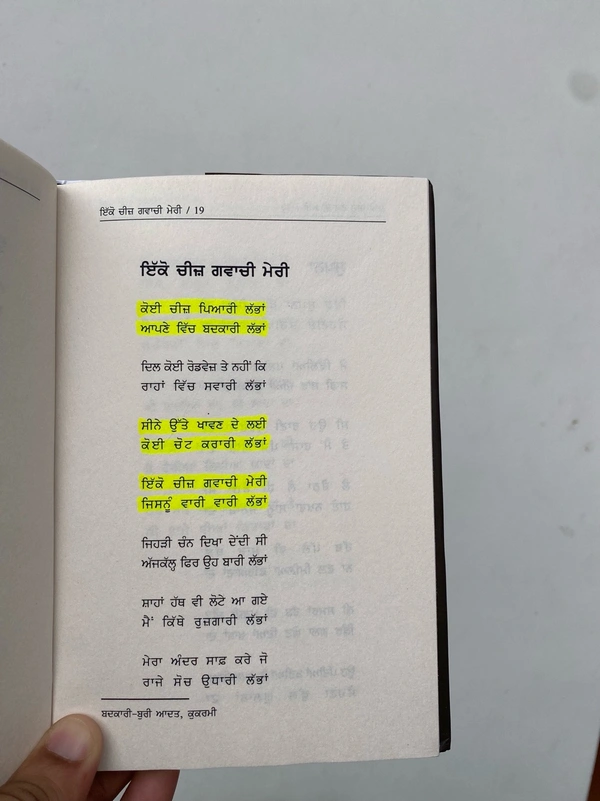 ਇੱਕੋ ਚੀਜ਼ ਗਵਾਚੀ ਮੇਰੀ / 19
ਇੱਕੋ ਚੀਜ਼ ਗਵਾਚੀ ਮੇਰੀ
ਕੋਈ ਚੀਜ਼ ਪਿਆਰੀ ਲੱਭਾਂ
ਆਪਣੇ ਵਿੱਚ ਬਦਕਾਰੀ ਲੱਭਾਂ
ਦਿਲ ਕੋਈ ਰੋਡਵੇਜ਼ ਤੇ ਨਹੀਂ ਕਿ
ਰਾਹਾਂ ਵਿੱਚ ਸਵਾਰੀ ਲੱਭਾਂ
ਸੀਨੇ ਉੱਤੇ ਖਾਵਣ ਦੇ ਲਈ
ਕੋਈ ਚੋਟ ਕਰਾਰੀ ਲੱਭਾਂ
ਇੱਕੋ ਚੀਜ਼ ਗਵਾਚੀ ਮੇਰੀ
ਜਿਸਨੂੰ ਵਾਰੀ ਵਾਰੀ ਲੱਭਾਂ
ਜਿਹੜੀ ਚੰਨ ਦਿਖਾ ਦੇਂਦੀ ਸੀ
ਅੱਜਕੱਲ੍ਹ ਫਿਰ ਉਹ ਬਾਰੀ ਲੱਭਾਂ
ਸ਼ਾਹਾਂ ਹੱਥ ਵੀ ਲੋਟੇ ਆ ਗਏ
ਮੈਂ ਕਿੱਥੇ ਰੁਜ਼ਗਾਰੀ ਲੱਭਾਂ
ਮੇਰਾ ਅੰਦਰ ਸਾਫ਼ ਕਰੇ ਜੋ
ਰਾਜੇ ਸੋਚ ਉਧਾਰੀ ਲੱਭਾਂ
ਬਦਕਾਰੀ-ਬੁਰੀ ਆਦਤ, ਕੁਕਰਮੀ